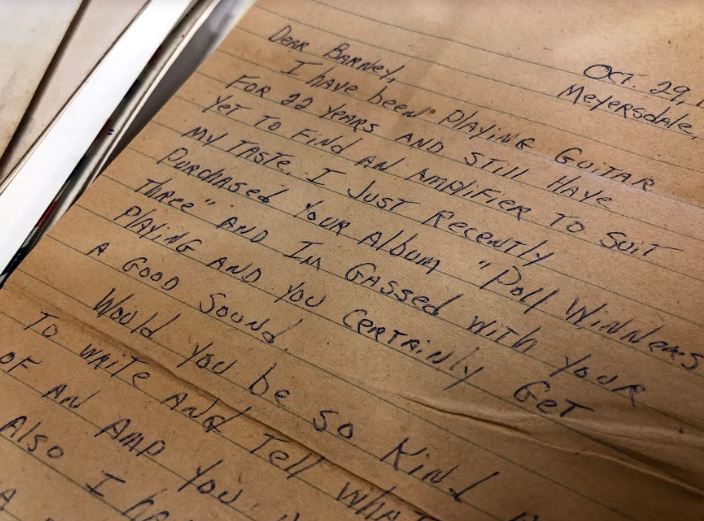 Oct. 29,
Meyersdale,
Dear Barney,
I have been playing guitar
for 22 years and still have
yet to find an amplifier to suit
my taste. I just recently
purchased your album "Poll Winners
Three" and Im gassed with your
playing and you certainly get
a good sound.
Would you be so kind
to write and tell what
of an amp you
Also I